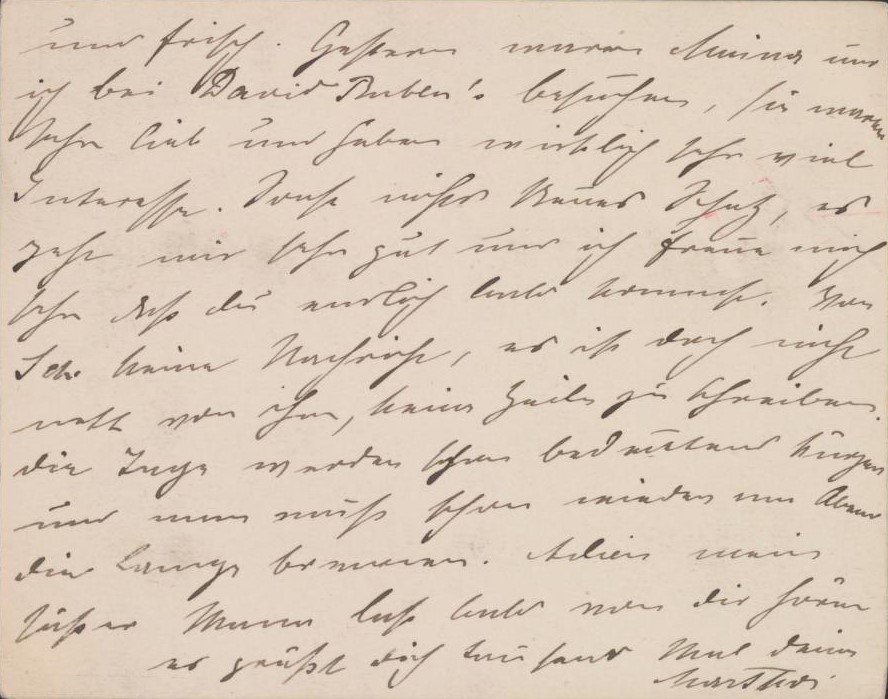 und frisch. Gestern waren Minna und
ich bei David Ruben's besuchen, sie waren
sehr lieb und haben wirklich sehr viel
Interesse. Sonst nichts Neues Schatz, es
geht mir sehr gut und ich freue mich
sehr daß du endlich bald kommst. Von
keine Nachricht, es ist doch nicht
nett von ihm, keine Zeile zu schreiben.
die Tage werden schon bedeutend kürzer
und man muß schon wieder am Abend
die Lampe brennen. Adieu mein
süßer Mann laß bald von dir hören
es grüßt dich tausend Mal deine